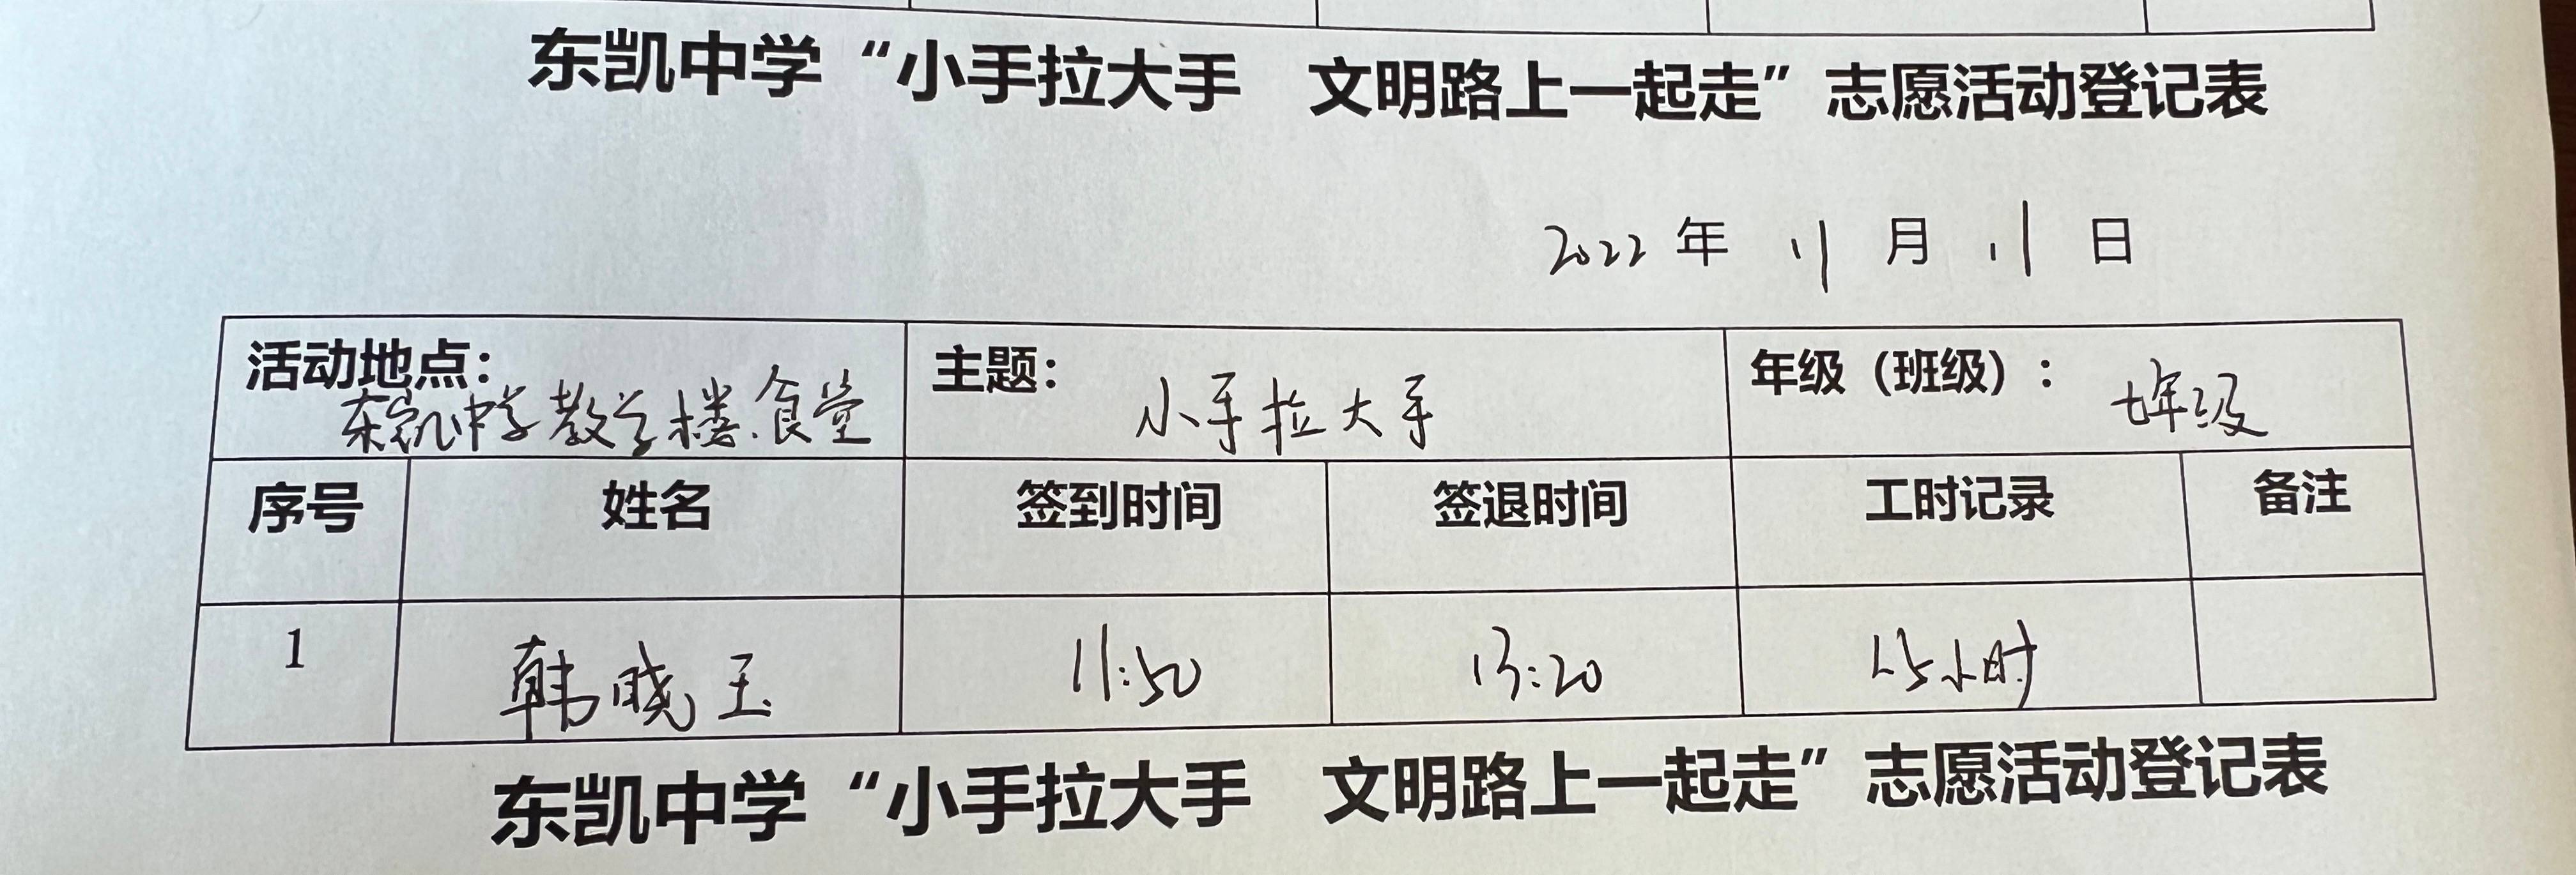 东凯中学“小手拉大手 文明路上一起走”志愿活动登记表
2022 年 11 月 11 日
活动地点: 东凯中学教学楼.食堂 主题: 小手拉大手 年级（班级）: 七年级
序号 姓名 签到时间 签退时间 工时记录 备注
1 韩晓玉 11:50 13:20 1.5小时
东凯中学“小手拉大手 文明路上一起走”志愿活动登记表